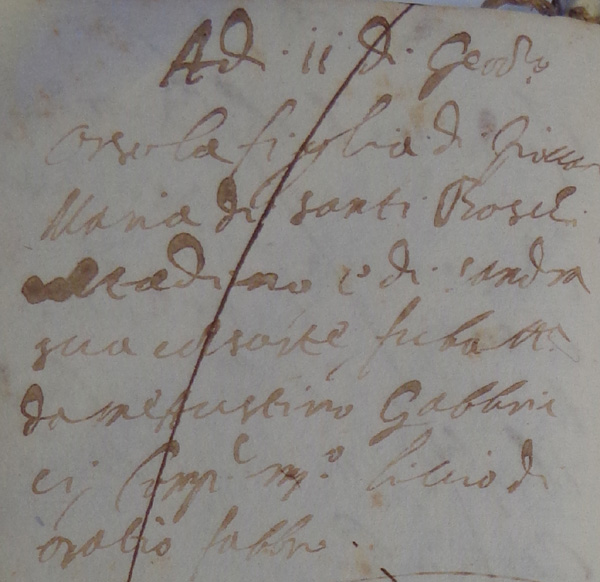 Adi · ii di · Geno
Orsola figlia di Giovan
Maria di santi Roseli
Contadino e di sandra
sua consorte fu batt
da me faustino Gabbrie
ej Comp. mo. livio di
oratio fabbri .